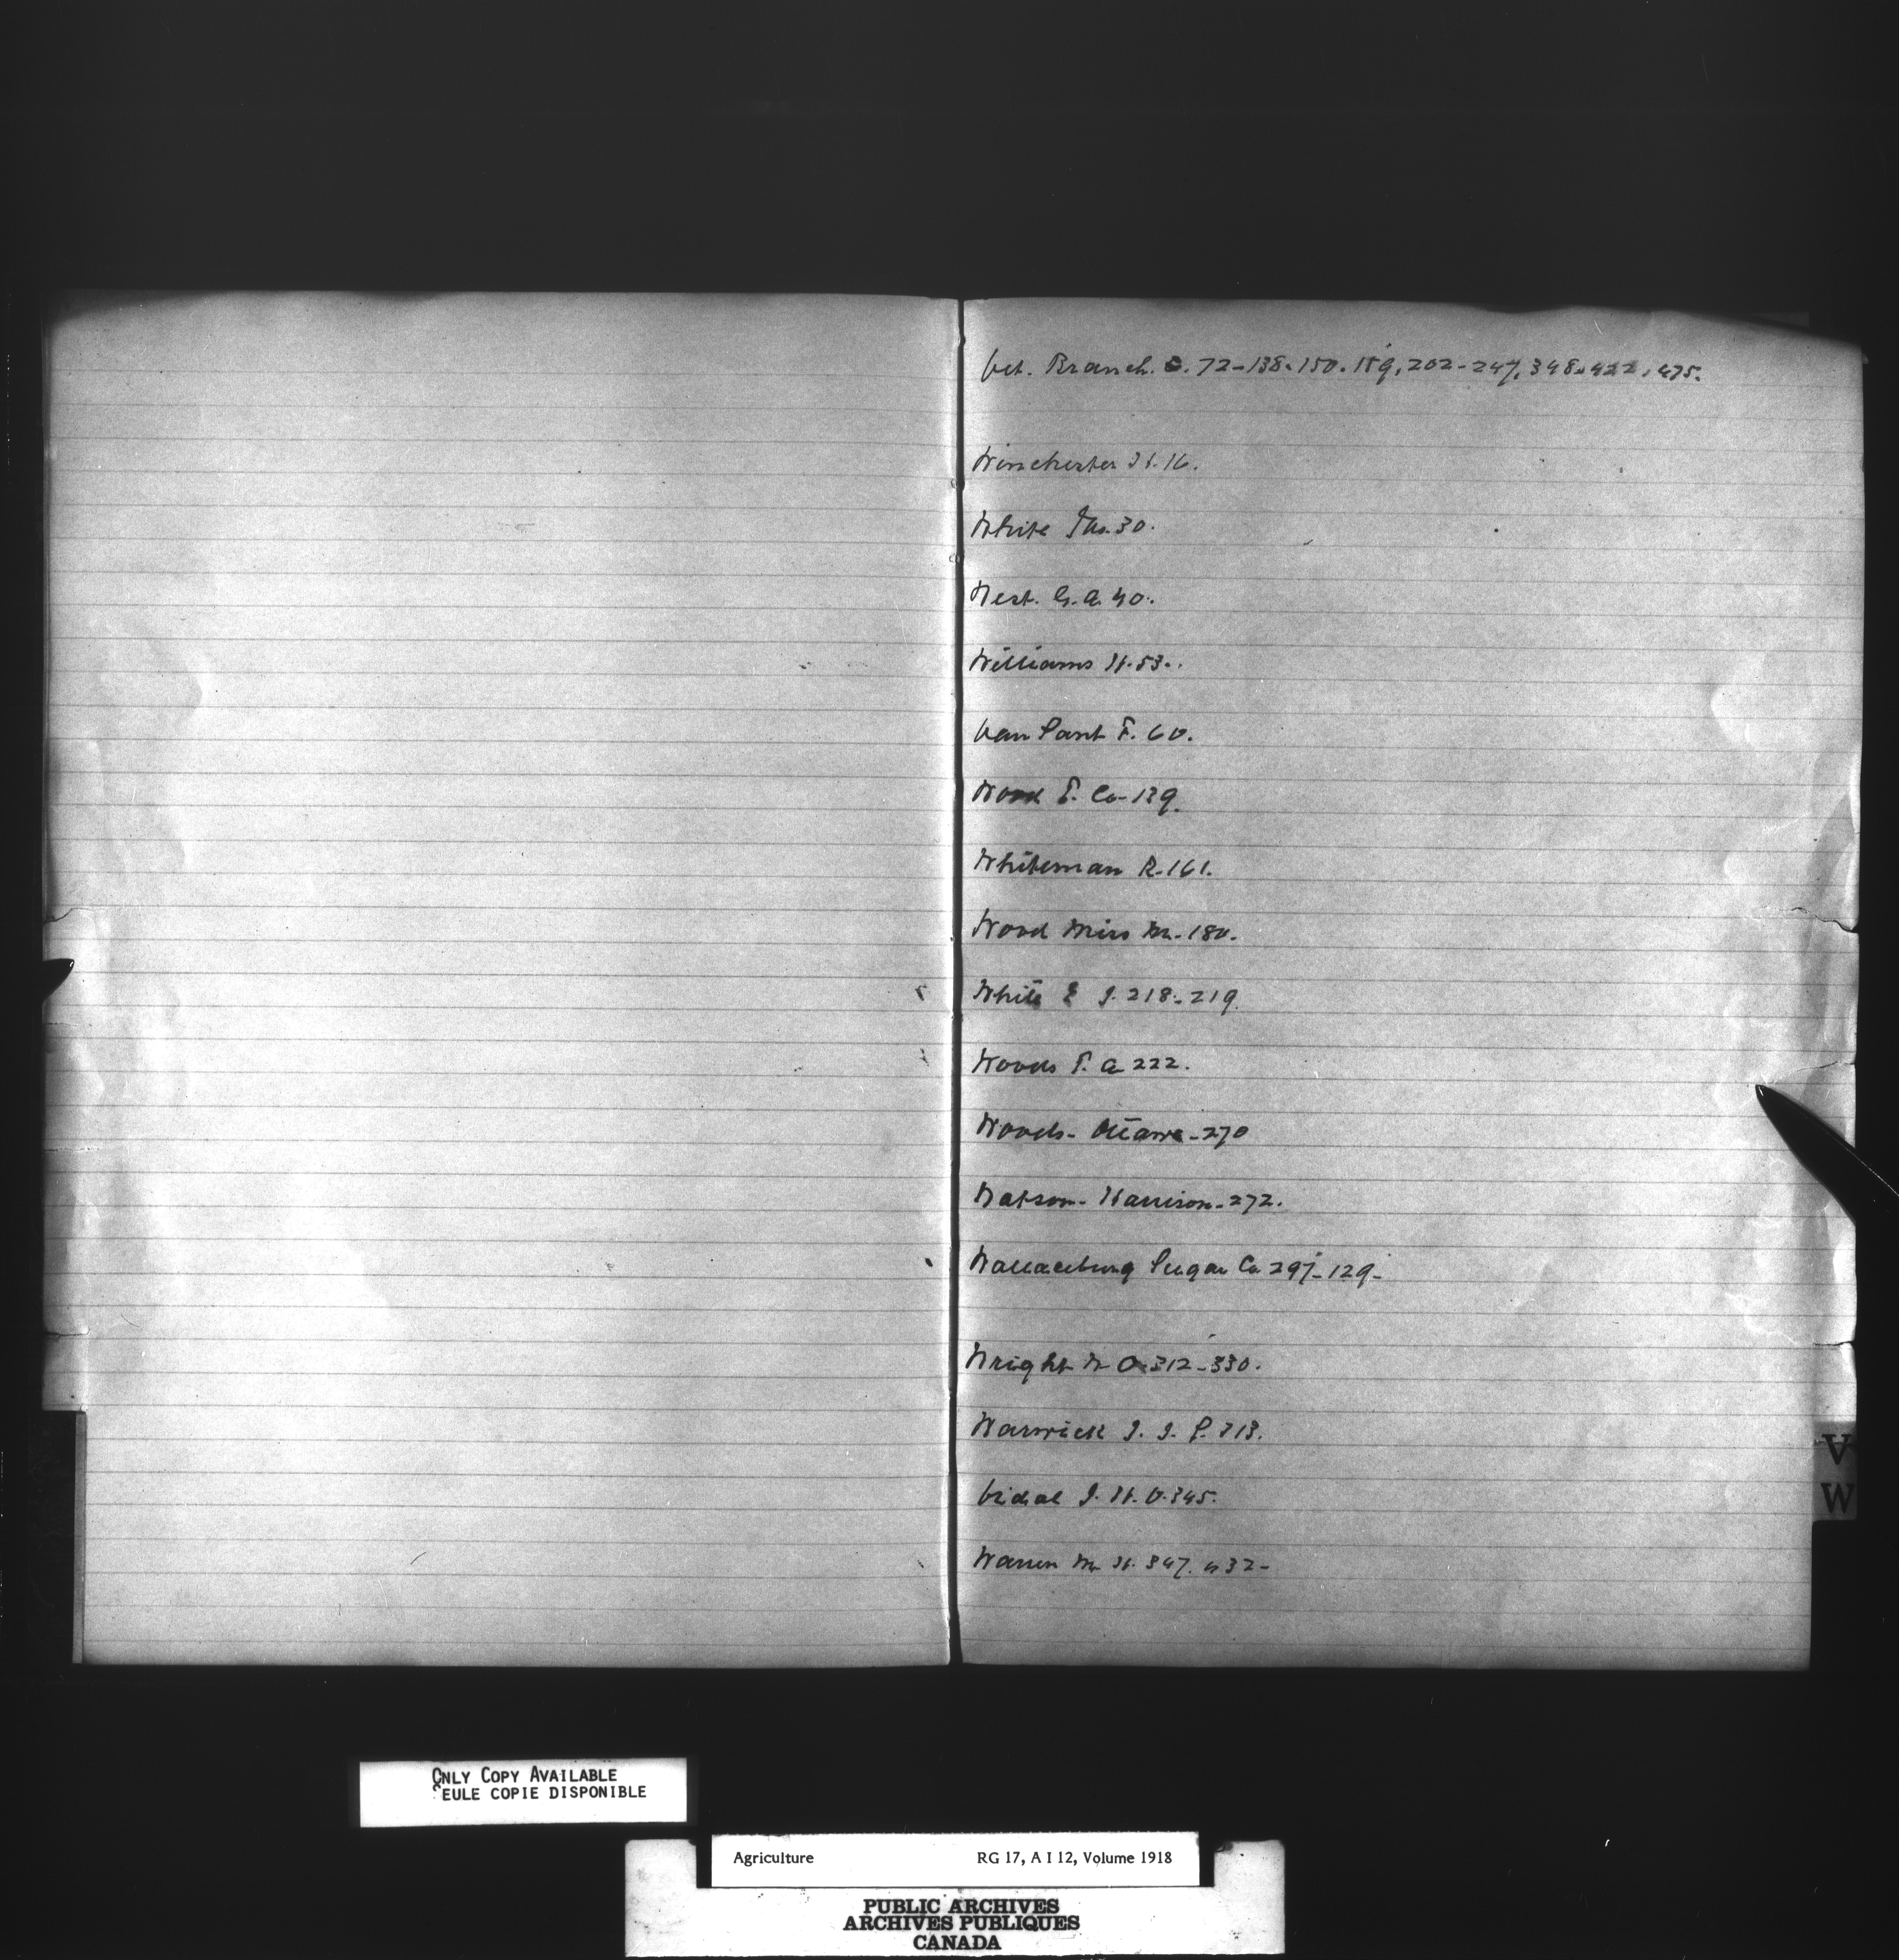 Vet. Branch. 72-138-150. 159, 202-247, 348-422, 475.
Winchester H. 16.
White Jas. 30.
West. G. A. 40.
Williams H. 53.
Van Sant F. 60.
Wood T. Co- 139.
Whiteman R. 161.
Wood Miss M. 180.
White E J. 218-219.
Woods T. A 222.
Woods- Ottawa- 270
Watson- Harrison- 272.
Wallaceburg Sugar Co 297-129-
Wright W O 312-330.
Warwick J. J. S. 313.
Vidal J. H. O. 345.
Warren M H. 347. 432-
V
W
ONLY COPY AVAILABLE
SEULE COPIE DISPONIBLE
Agriculture RG 17, A I 12, Volume 1918
PUBLIC ARCHIVES
ARCHIVES PUBLIQUES
CANADA